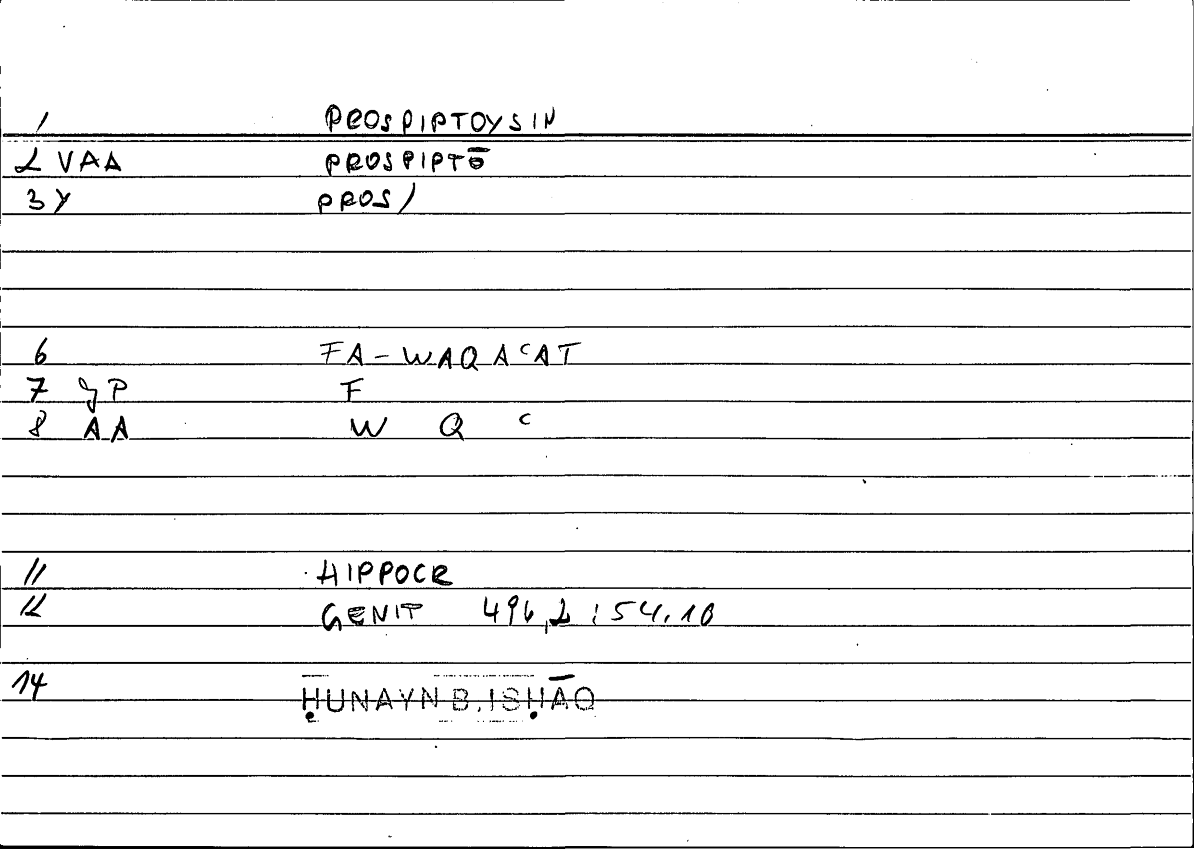 1 PROSPIPTOYSIN
2 VAA PROSPIPTŌ
3 Y PROS/
6 FA-WAQAʿAT
7 JP F
8 AA W Q ʿ
11 HIPPOCR
12 GENIT 496,2 : 54.10
14 ḤUNAYN B. ISḤĀQ